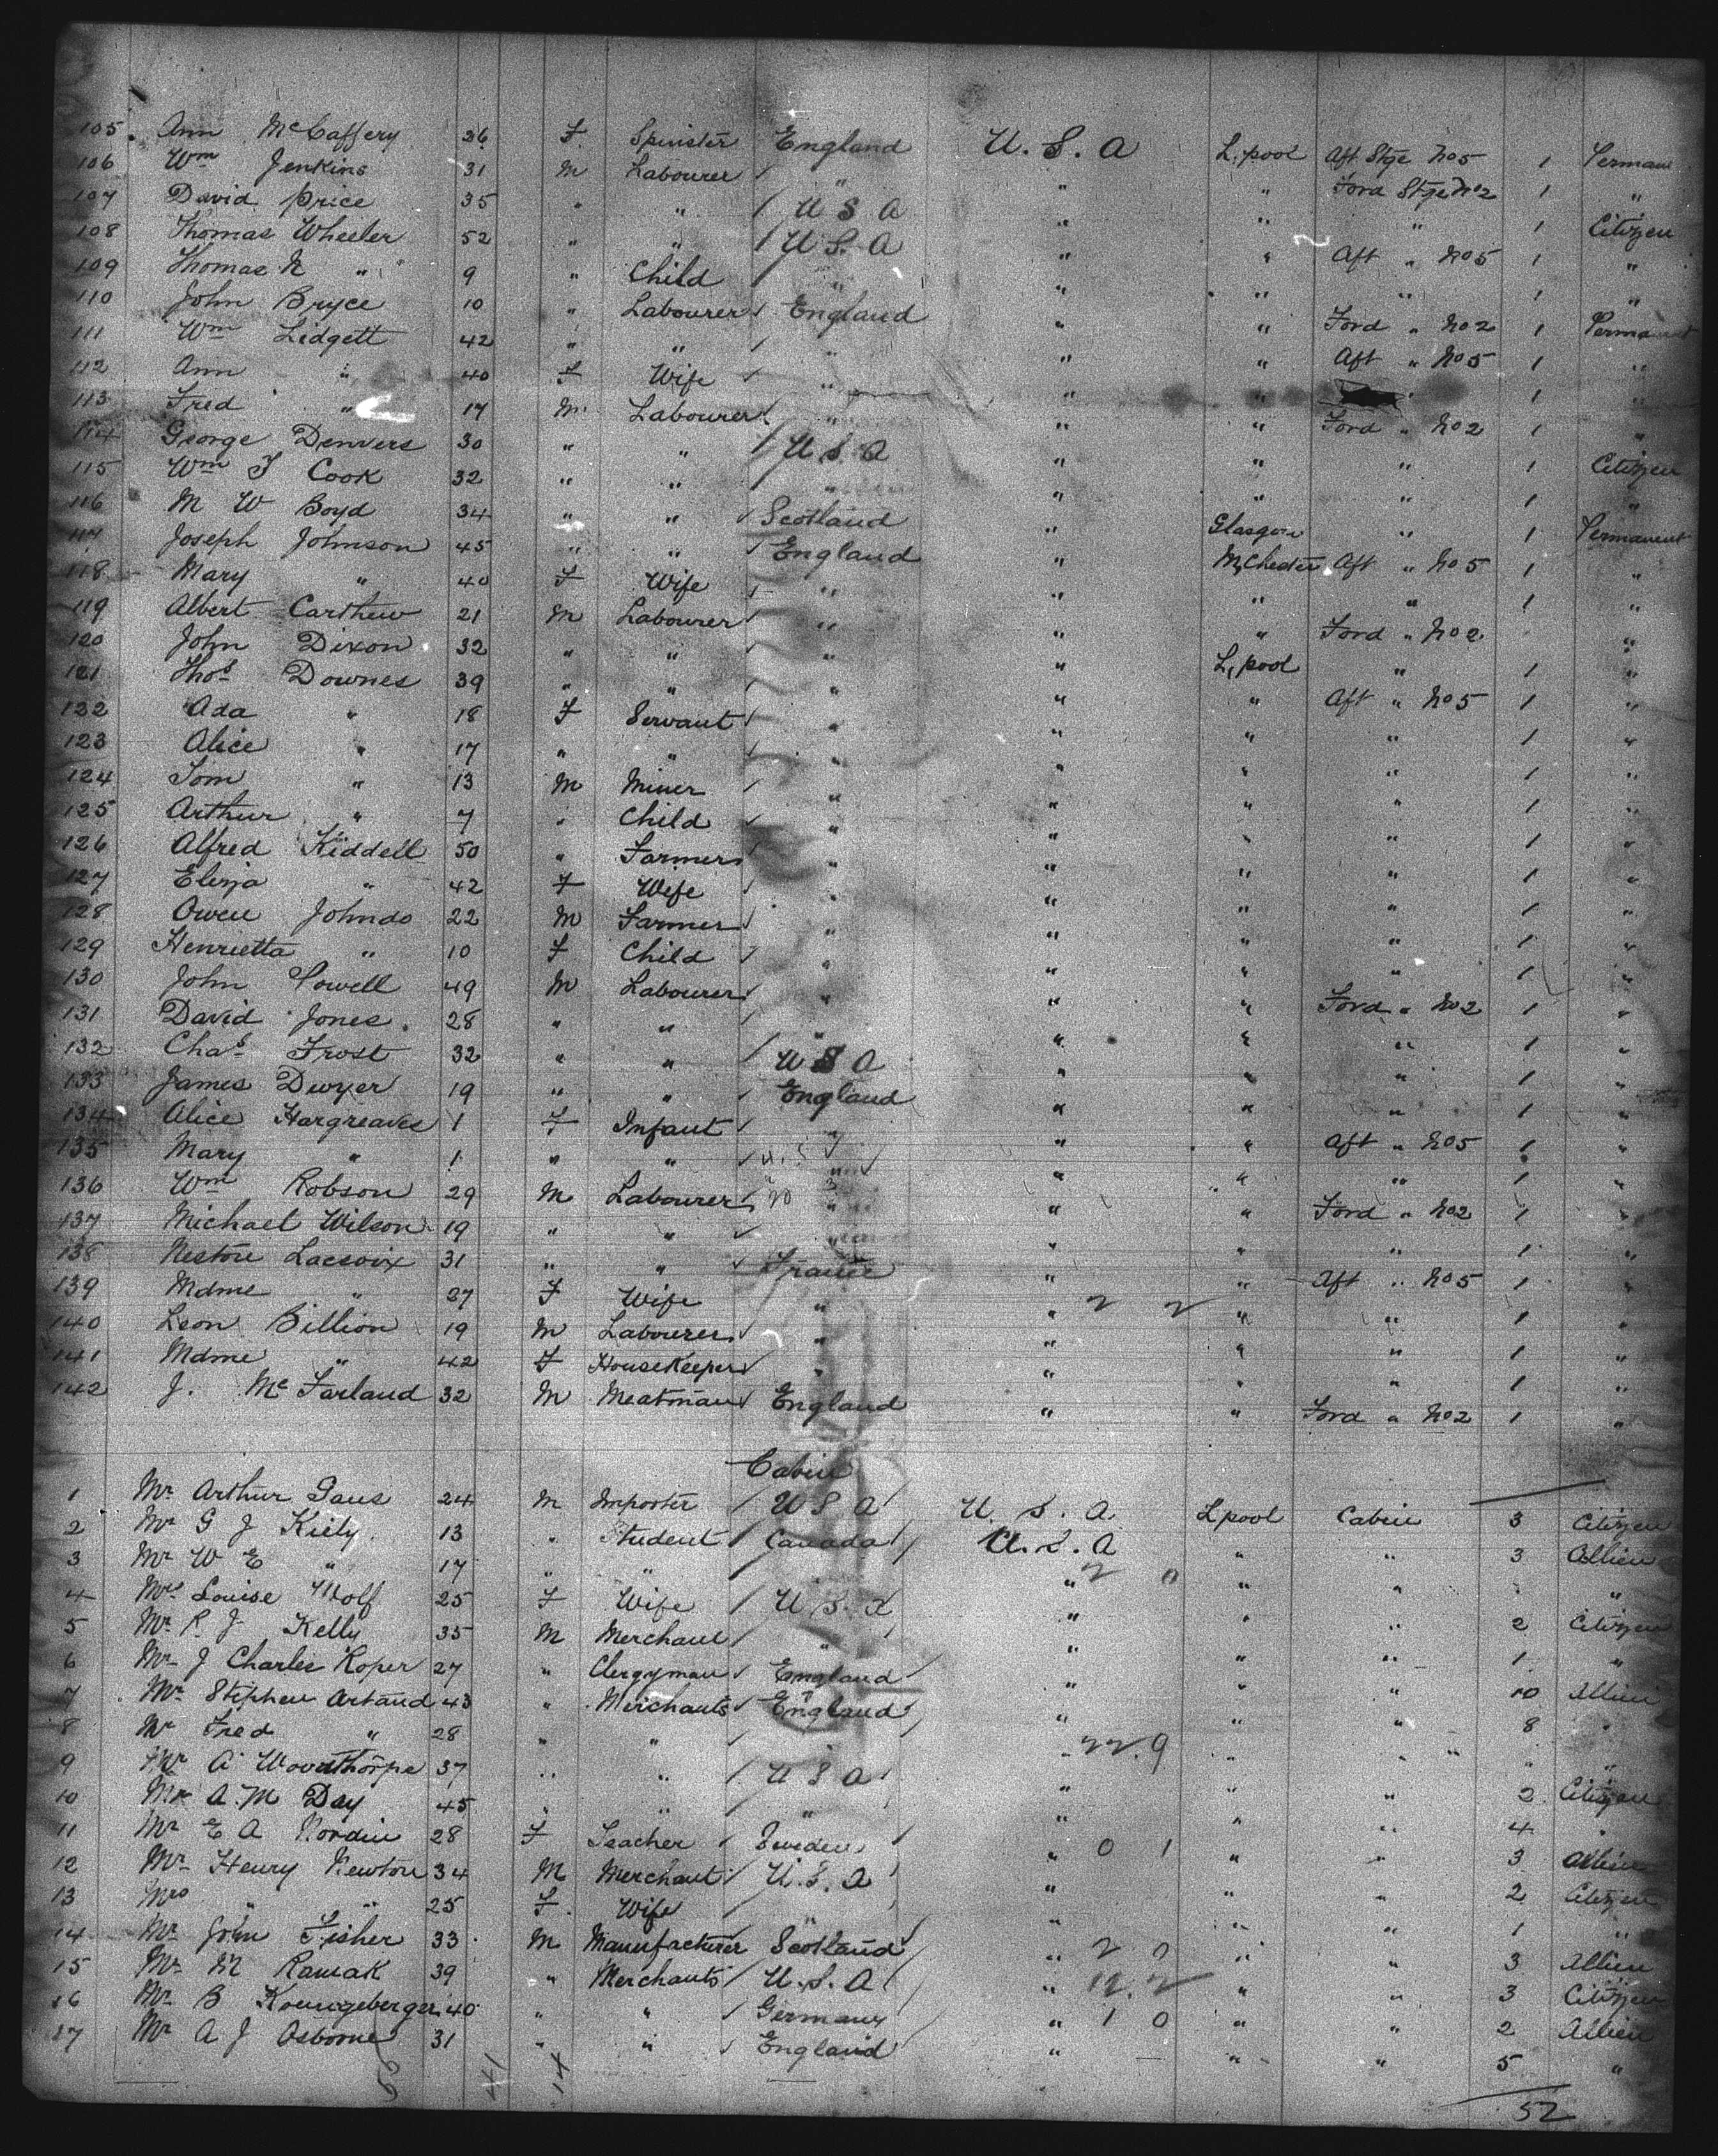 105 Ann McCaffery 36 F Spinster England U. S. A L,pool Aft Stge No 5 1 Perman
106 Wm Jenkins 31 M Labourer " " " Ford Stge No 2 1 "
107 David Price 35 " " U S A " " " 1 Citizen
108 Thomas Wheeler 52 " " U S. A " " Aft " No 5 1 "
109 Thomas N " 9 " Child " " " " 1 "
110 John Bryce 10 " Labourer England " " Ford " No 2 1 Permanent
111 Wm Lidgett 42 " " " " " Aft " No 5 1 "
112 Ann " 40 F Wife " " " " 1 "
113 Fred " 17 M Labourer " " " Ford " No 2 1 "
114 George Denvers 30 " " U S. A " " " 1 Citizen
115 Wm J Cook 32 " " " " " " 1 "
116 M W Boyd 34 " " Scotland " Glasgow " 1 Permanent
117 Joseph Johnson 45 " " England " M,Chester Aft " No 5 1 "
118 Mary " 40 F Wife " " " " 1 "
119 Albert Carthew 21 M Labourer " " " Ford " No 2 "
120 John Dixon 32 " " " " L,pool " 1 "
121 Thos Downes 39 " " " " " Aft " No 5 1 "
122 Ada " 18 F Servant " " " " 1 "
123 Alice " 17 " " " " " " 1 "
124 Tom " 13 M Miner " " " " 1 "
125 Arthur " 7 " Child " " " " 1 "
126 Alfred Kiddell 50 " Farmer " " " " 1 "
127 Eliza " 42 F Wife " " " " 1 "
128 Owen Johndo 22 M Farmer " " " " 1 "
129 Henrietta " 10 F Child " " " " 1 "
130 John Powell 49 M Labourer " " " Ford " No 2 1 "
131 David Jones 28 " " " " " " 1 "
132 Chas Frost 32 " " U S A " " " 1 "
133 James Dwyer 19 " " England " " " 1 "
134 Alice Hargreaves 1 F Infant " " " Aft " No 5 1 "
135 Mary " 1 " " " " " " 1 "
136 Wm Robson 29 M Labourer " " " Ford " No 2 1 "
137 Michael Wilson 19 " " " " " " 1 "
138 Nestore Lacroix 31 " " France " " Aft " No 5 1 "
139 Mdme " 27 F Wife " " 2 2 " " 1 "
140 Leon Billion 19 M Labourer " " " " 1 "
141 Mdme " 42 F HouseKeeper " " " " 1 "
142 J. McFarland 32 M Meatman England " " Ford " No 2 1 "
Cabin
1 Mr Arthur Gaus 24 M Importer U S A U. S. A. L pool Cabin 3 Citizen
2 Mr G J Kiely 13 " Student Canada U. S. A " " 3 Allien
3 Mr W E " 17 " " " 2 0 " " "
4 Mrs Louise Wolf 25 F Wife U. S. A " " " 2 Citizen
5 Mr R J Kelly 35 M Merchant " " " " 1 "
6 Mr J Charles Roper 27 " Clergyman England " " " 10 Allien
7 Mr Stephen Artaud 43 " Merchants England " " " 8 "
8 Mr Fred " 28 " " " 22.9 " " " "
9 Mr A Woodthorpe 37 " " U S A " " " 2 Citizen
10 Mr A. M Day 45 " " " " " " 4
11 Mr E A Nordin 28 F Teacher Sweden " 0 1 " " 3 Allien
12 Mr Henry Newton 34 M Merchant U. S. A " " " 2 Citizen
13 Mrs " " 25 F Wife " " " " 1 "
14 Mr John Fisher 33 M Manufacturer Scotland " 2 0 " " 3 Allien
15 Mr M Ramak 39 " Merchants U. S. A " " " 3 Citizen
16 Mr B 40 " " Germany " 1 0 " " 2 Allien
17 Mr A J Osborne 31 " " England " " " 5 "
41 14
52